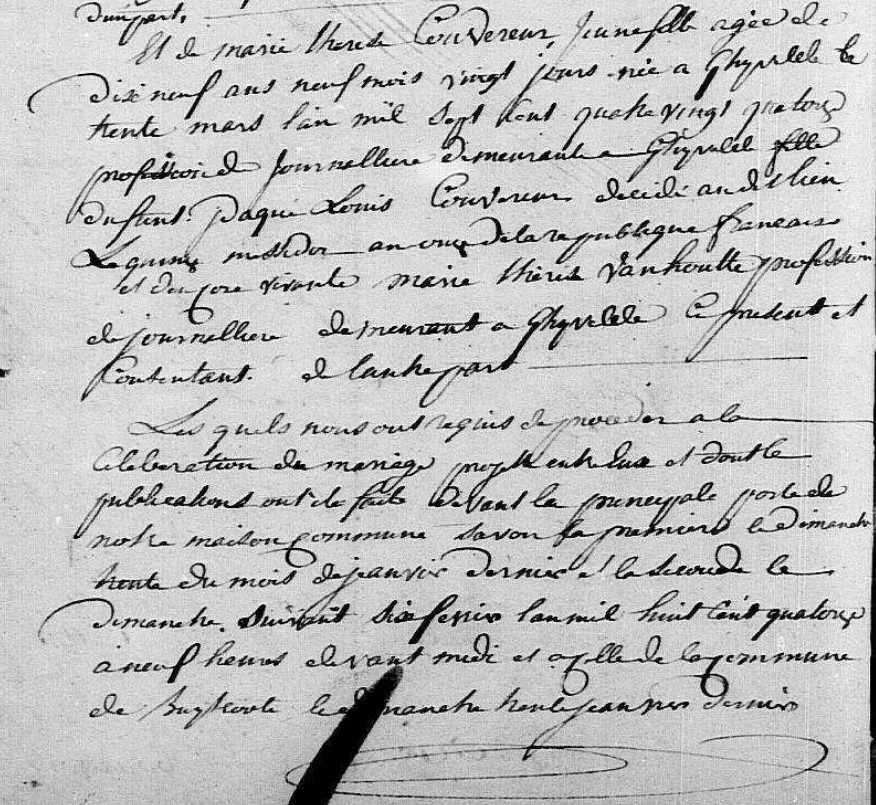 d'une part,
Et de marie therese Couvereur, Jeune fille agée de
dix neuf ans neuf mois vingt jours née a Ghyvelde le
trente mars l'an mil sept cent quatre vingt quatorze
profession de Journalliere demeurante a Ghyvelde fille
du funt. paque Louis Couvereur decidé au dit lieu
Le quinze messidor an onze de la republique francaise
et den core vivante marie therese Vanhoutte profession
de journalliere demeurant a Ghyvelde Ce present et
Contentant. de l'autre part
Les quels nous ont requis de proceder a la
Celebration du mariage projetté entre Eux et dont le
publications ont ete faite devant la principale porte de
notre maison Commune savoir la premiere le dimanche
trente du mois de jeanvier dernier et la seconde le
dimanche. Suivant Six fevrier l'an mil huit Cent quatorze
a neuf heures devant midi et a celle de la Commune
de le dimanche trente jeanvier dernier